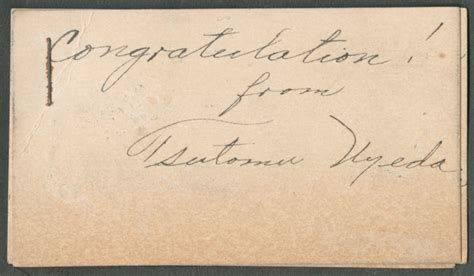 Congratulation!
from
Tsutomu Uyeda